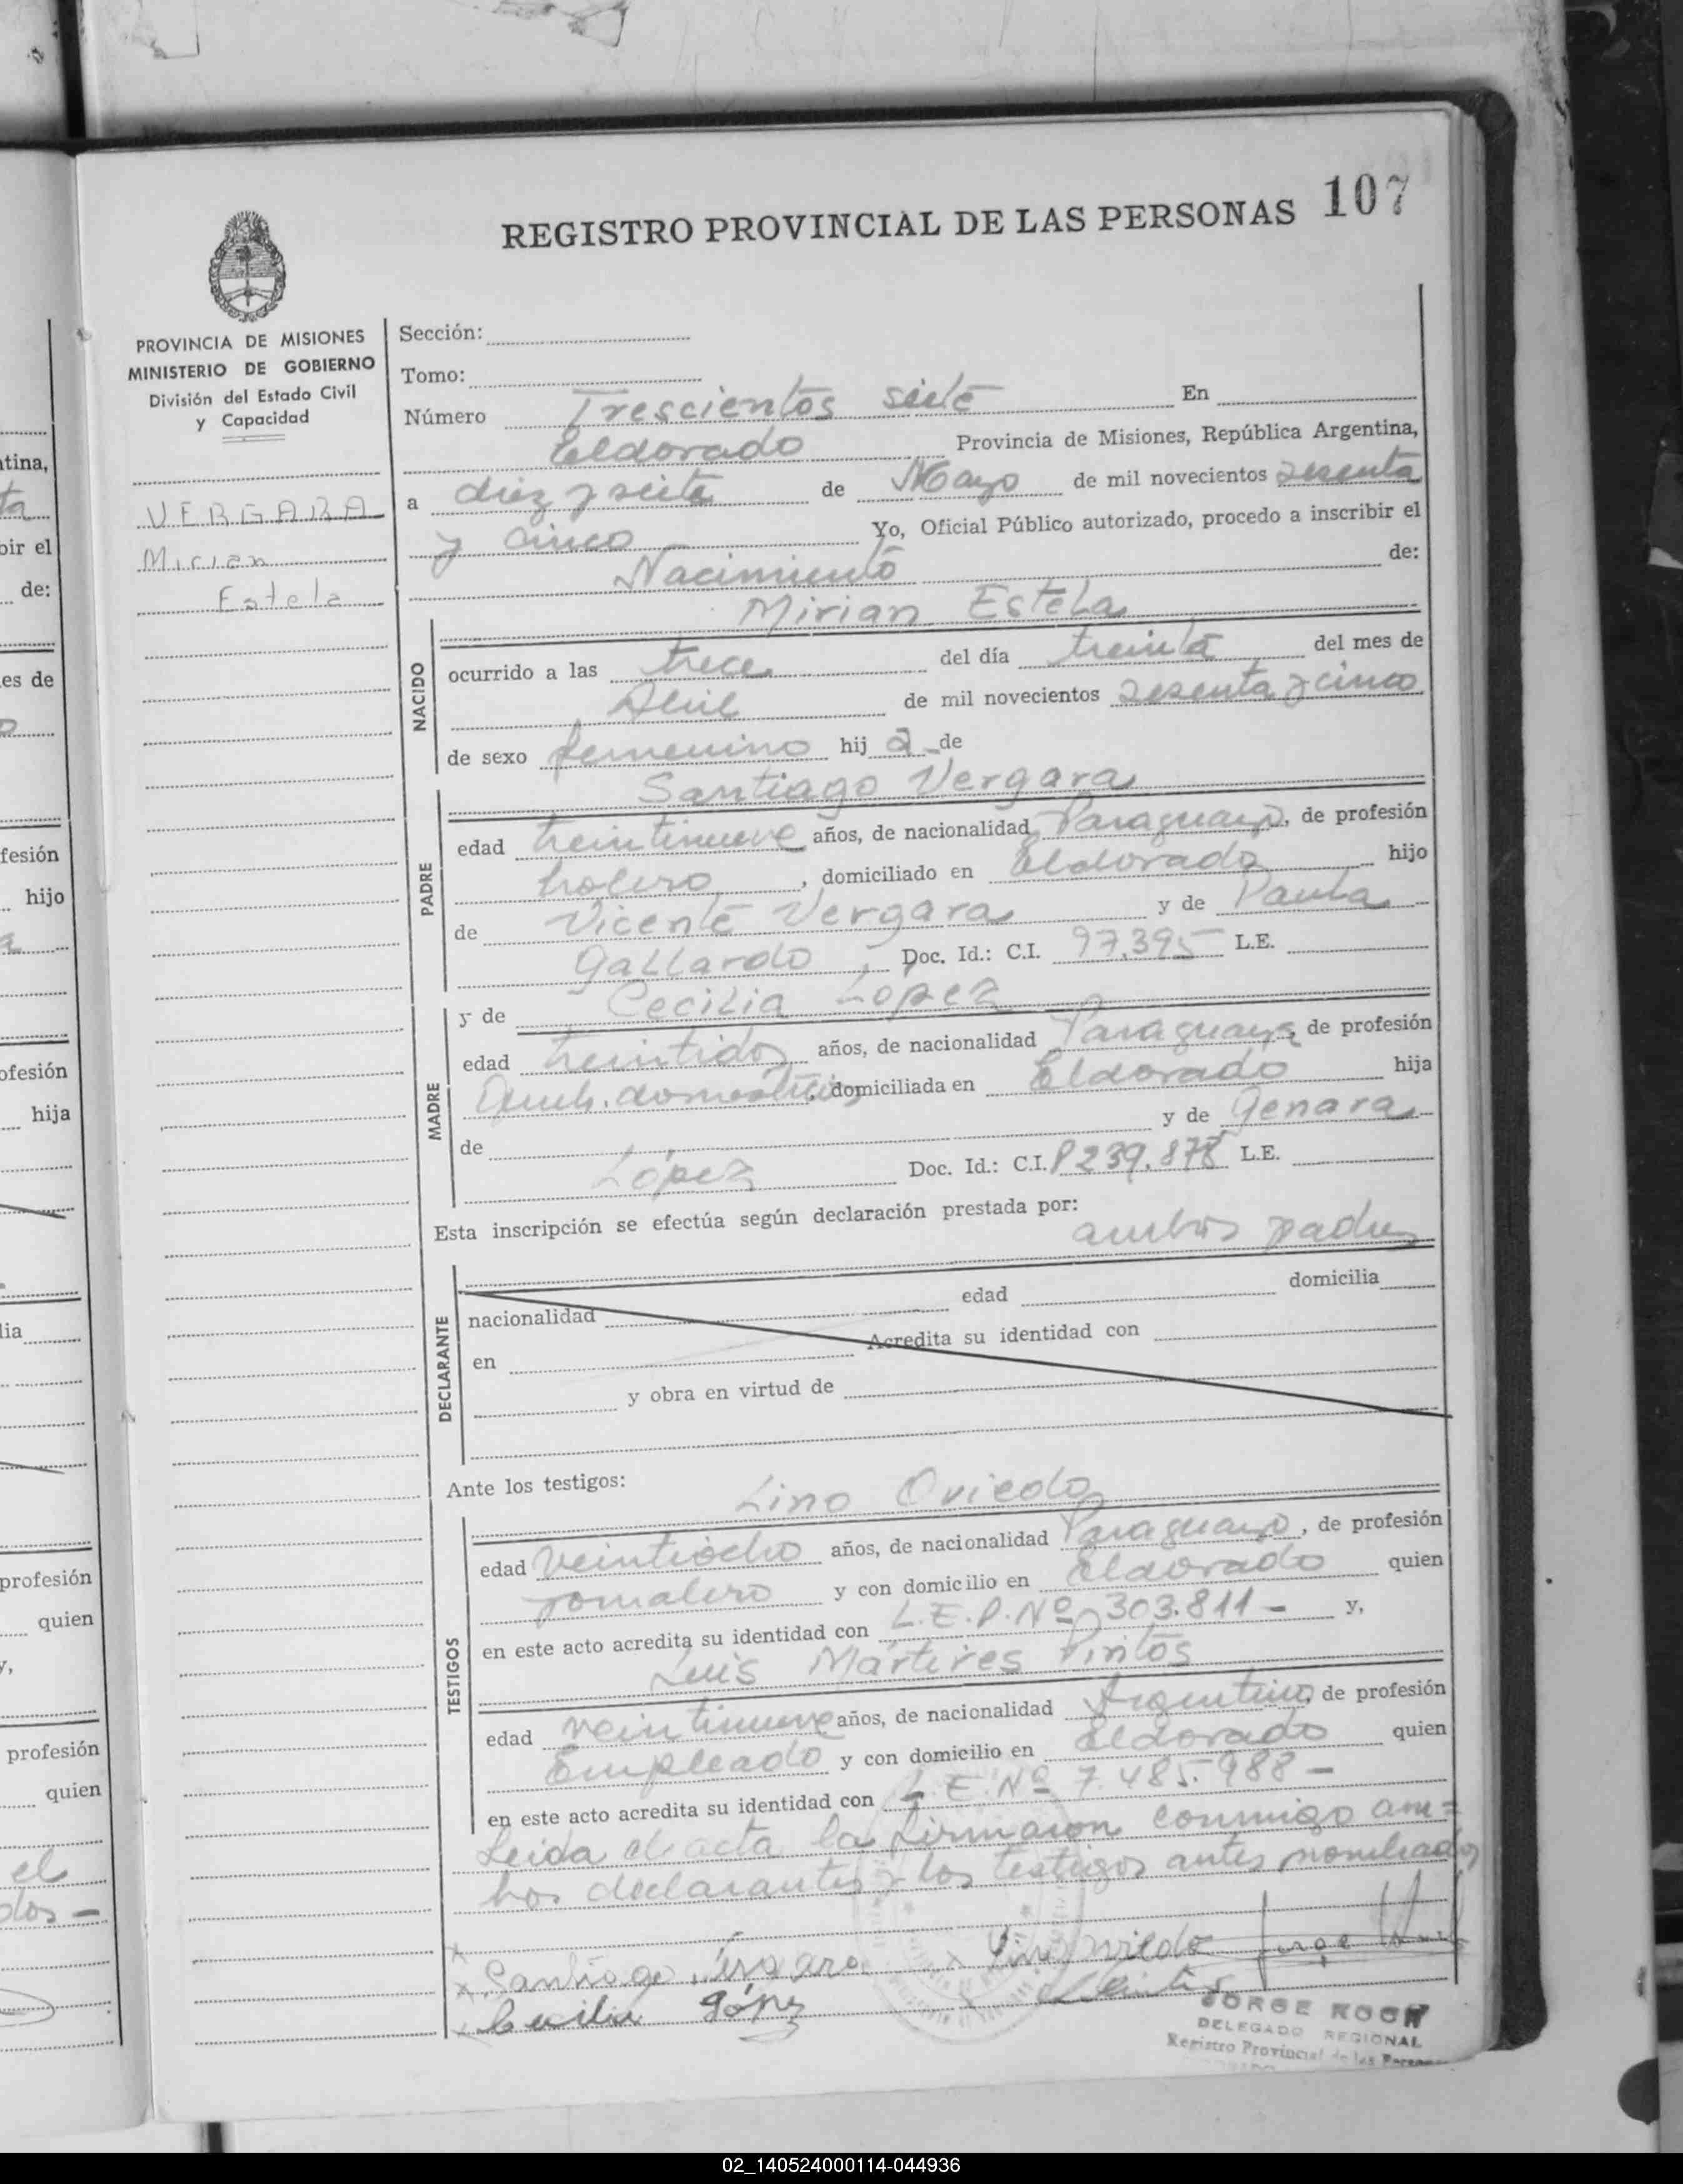 107
REGISTRO PROVINCIAL DE LAS PERSONAS
PROVINCIA DE MISIONES
MINISTERIO DE GOBIERNO
División del Estado Civil
y Capacidad
VERGARA
Mirian
Estela
Sección:
Tomo:
Número Trescientos siete En
Eldorado Provincia de Misiones, República Argentina,
a diez y siete de Mayo de mil novecientos sesenta
y cinco Yo, Oficial Público autorizado, procedo a inscribir el
Nacimiento de:
Mirian Estela
NACIDO
ocurrido a las trece del día treinta del mes de
Abril de mil novecientos sesenta y cinco
de sexo femenino hij a de
Santiago Vergara
PADRE
edad treintinueve años, de nacionalidad Paraguayo, de profesión
, domiciliado en Eldorado hijo
de Vicente Vergara y de Paula
Gallardo, Doc. Id.: C.I. 97.395 L.E.
MADRE
y de Cecilia López
edad treintidos años, de nacionalidad Paraguaya, de profesión
domiciliada en Eldorado hija
de y de Genara
López Doc. Id.: C.I. P 239.878 L.E.
Esta inscripción se efectúa según declaración prestada por:
ambos padres
DECLARANTE
nacionalidad edad domicilia
en Acredita su identidad con
y obra en virtud de
Ante los testigos:
Lino Oviedo
TESTIGOS
edad veintiocho años, de nacionalidad Paraguayo, de profesión
jornalero y con domicilio en Eldorado quien
en este acto acredita su identidad con L.E.P.Nº 303.811 - y,
Luis Mártires Pintos
edad veintinueve años, de nacionalidad Argentino, de profesión
Empleado y con domicilio en Eldorado quien
en este acto acredita su identidad con L.E.Nº 7.485.988 -
Leida el acta la firmaron conmigo am=
bos declarantes y los testigos antes nombrados
x Santiago Vergara x Lino Oviedo
x Cecilia López
JORGE KOCH
DELEGADO REGIONAL
Registro Provincial de las Personas
02_140524000114-044936